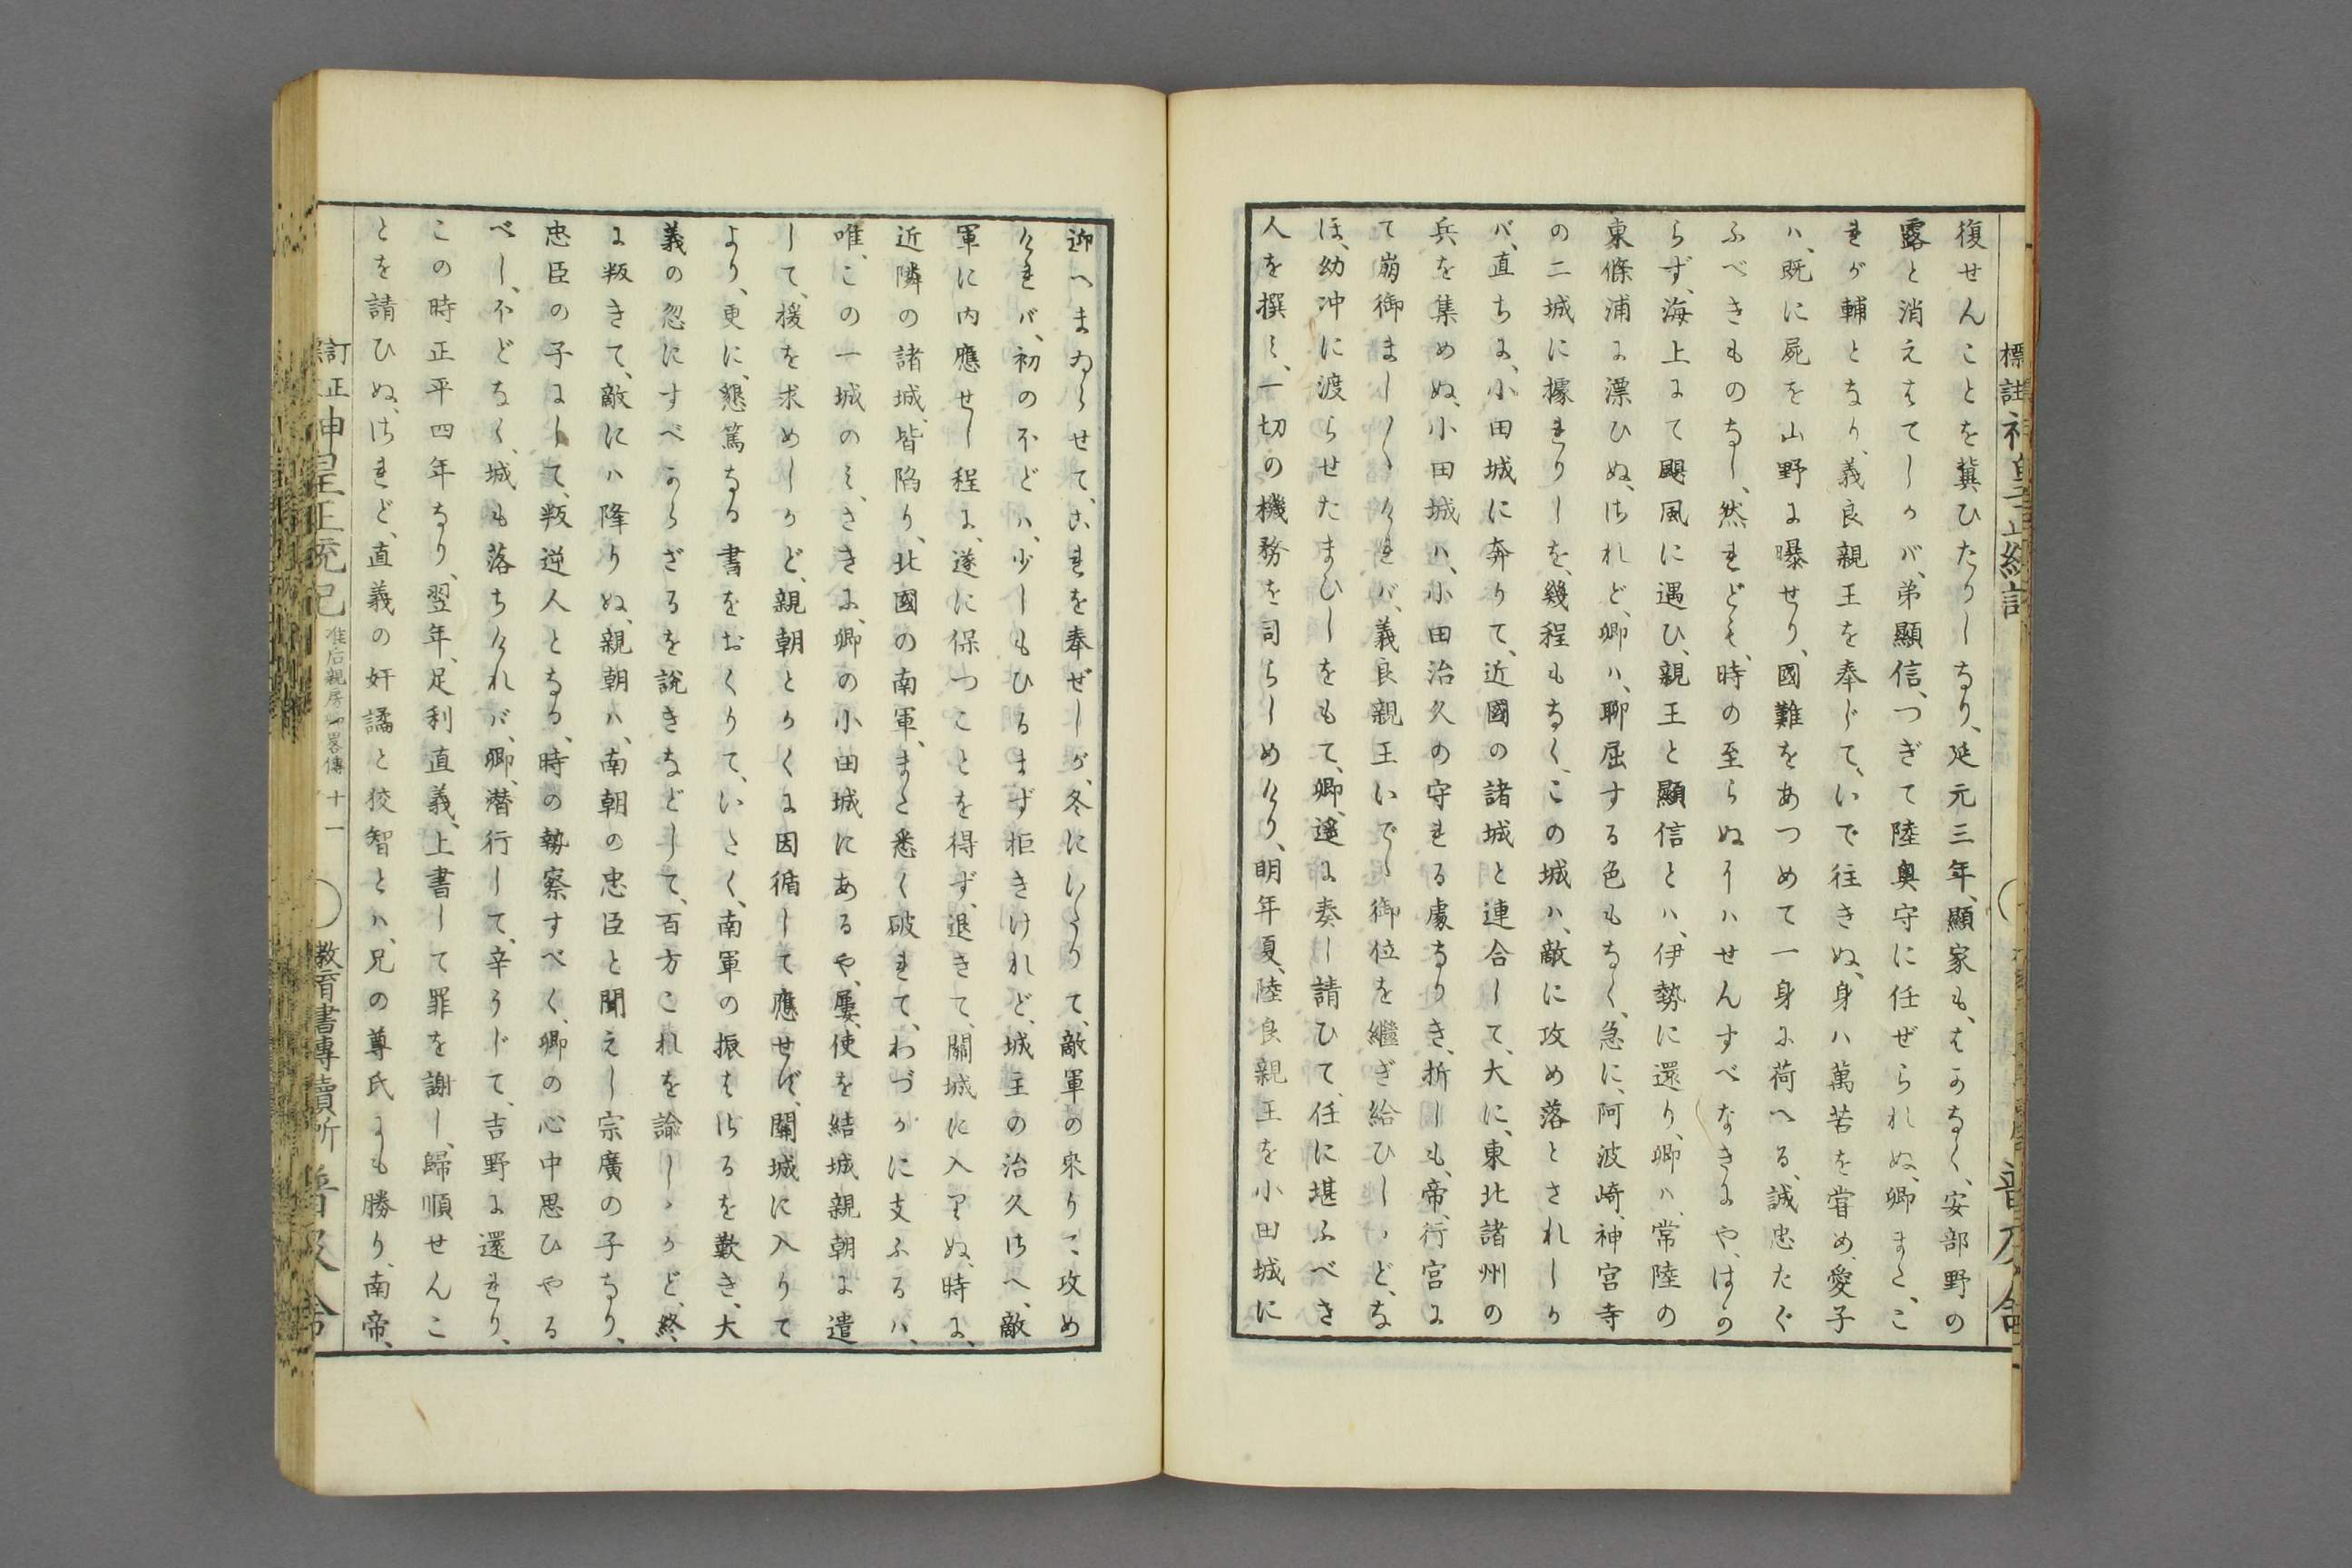 復せんことを冀ひたりしなり、延元三年、顯家も、はかなく、安部野の
露と消えはてしかバ、弟顯信、つぎて陸奥守に任ぜられぬ、卿また、こ
れが輔となり、義良親王を奉じて、いで往きぬ、身ハ萬苦を甞め、愛子
ハ、既に屍を山野に曝せり、國難をあつめて一身に荷へる、誠忠たぐ
ふべきものなし、然れども、時の至らぬハせんすべなきにや、はか
らず、海上にて颶風に遇ひ、親王と顯信とハ、伊勢に還り、卿ハ、常陸の
東條浦に漂ひぬ、されど、卿ハ、聊屈する色もなく、急に、阿波崎、神宮寺
の二城に據れりしを、幾程もなく、この城ハ、敵に攻め落とされしか
バ、直ちに、小田城に奔りて、近國の諸城と連合して、大に、東北諸州の
兵を集めぬ、小田城ハ、小田治久の守れる處なりき、折しも、帝、行宮に
て崩御ましましければ、義良親王いでゝ御位を繼ぎ給ひしゝど、な
ほ、幼冲に渡らせたまひしをもて、卿、遙に奏し請ひて、任に堪ふべき
人を撰ミ、一切の機務を司らしめけり、明年夏、陸良親王を小田城に
標註神皇正統記
迎へまゐらせて、これを奉ぜしが、冬にいたりて、敵軍の來りて攻め
けれバ、初のほどハ、少しもひるまず拒きけれど、城主の治久さへ、敵
軍に内應せし程に、遂に保つことを得ず、退きて、關城に入りぬ、時に、
近隣の諸城、皆陷り、北國の南軍、また悉く破れて、わづかに支ふるハ、
唯、この一城のミ、さきに、卿の小田城にあるや、屢、使を結城親朝に遣
して、援を求めしかど、親朝とかくに因循して應せず、關城に入りて
より、更に、懇篤なる書をおくりて、いたく、南軍の振はざるを歎き、大
義の忽にすべからざるを説きなどして、百方これを諭しゝかど、終
に叛きて、敵にハ降りぬ、親朝ハ、南朝の忠臣と聞えし宗廣の子なり、
忠臣の子にして、叛逆人となる、時の勢察すべく、卿の心中思ひやる
べし、ほどなく、城も落ちけれバ、卿、潜行して、辛うじて、吉野に還れり、
この時正平四年なり、翌年、足利直義、上書して罪を謝し、歸順せんこ
とを請ひぬ、されど、直義の奸譎と狡智とハ、兄の尊氏にも勝り、南帝、
訂正神皇正統記 准后親房卿畧傳 十一 教育書專賣所 普及舍